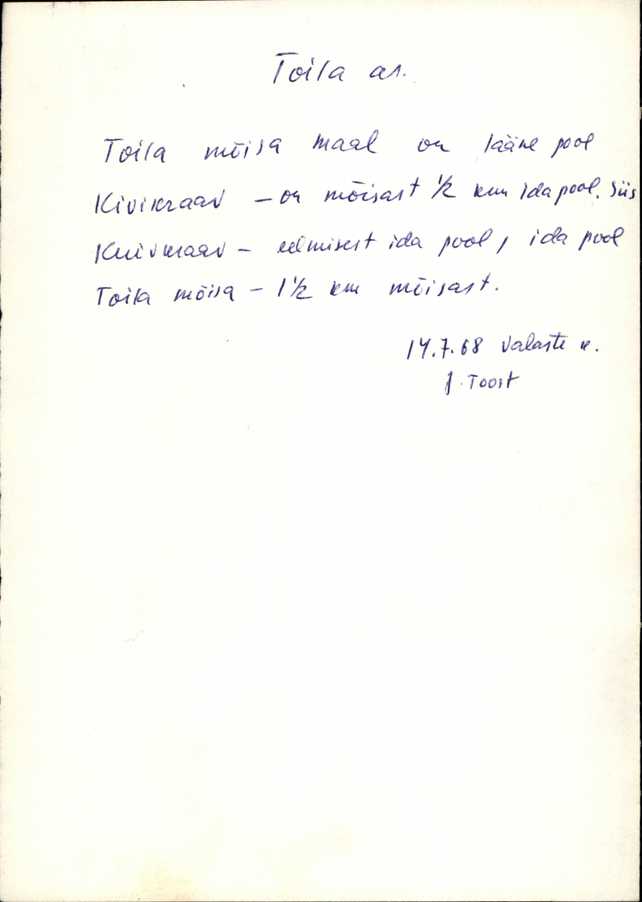 Toila as.
Toila mõisa maal on lääne pool
Kivikraav – on mõisast ½ km ida pool. Siis
Kuivkraav – eelmisest ida pool, ida pool
Toila mõisa – 1½ km mõisast.
14.7.68 Valaste k.
J. Toost